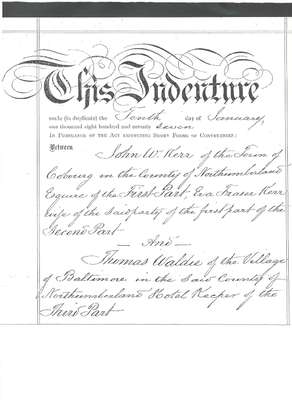 This Indenture
made (in duplicate) the Tenth day of January
one thousand eight hundred and seventy seven
IN PURSUANCE OF THE ACT RESPECTING SHORT FORMS OF CONVEYANCES:
Between
John W. Kerr of the Town of
Cobourg in the County of Northumberland
Esquire of the First Part Kerr
wife of the said party of the first part of the
Second Part
— And —
Thomas Waldie of the Village
of Baltimore in the said County of
Northumberland Hotel Keeper of the
Third Part